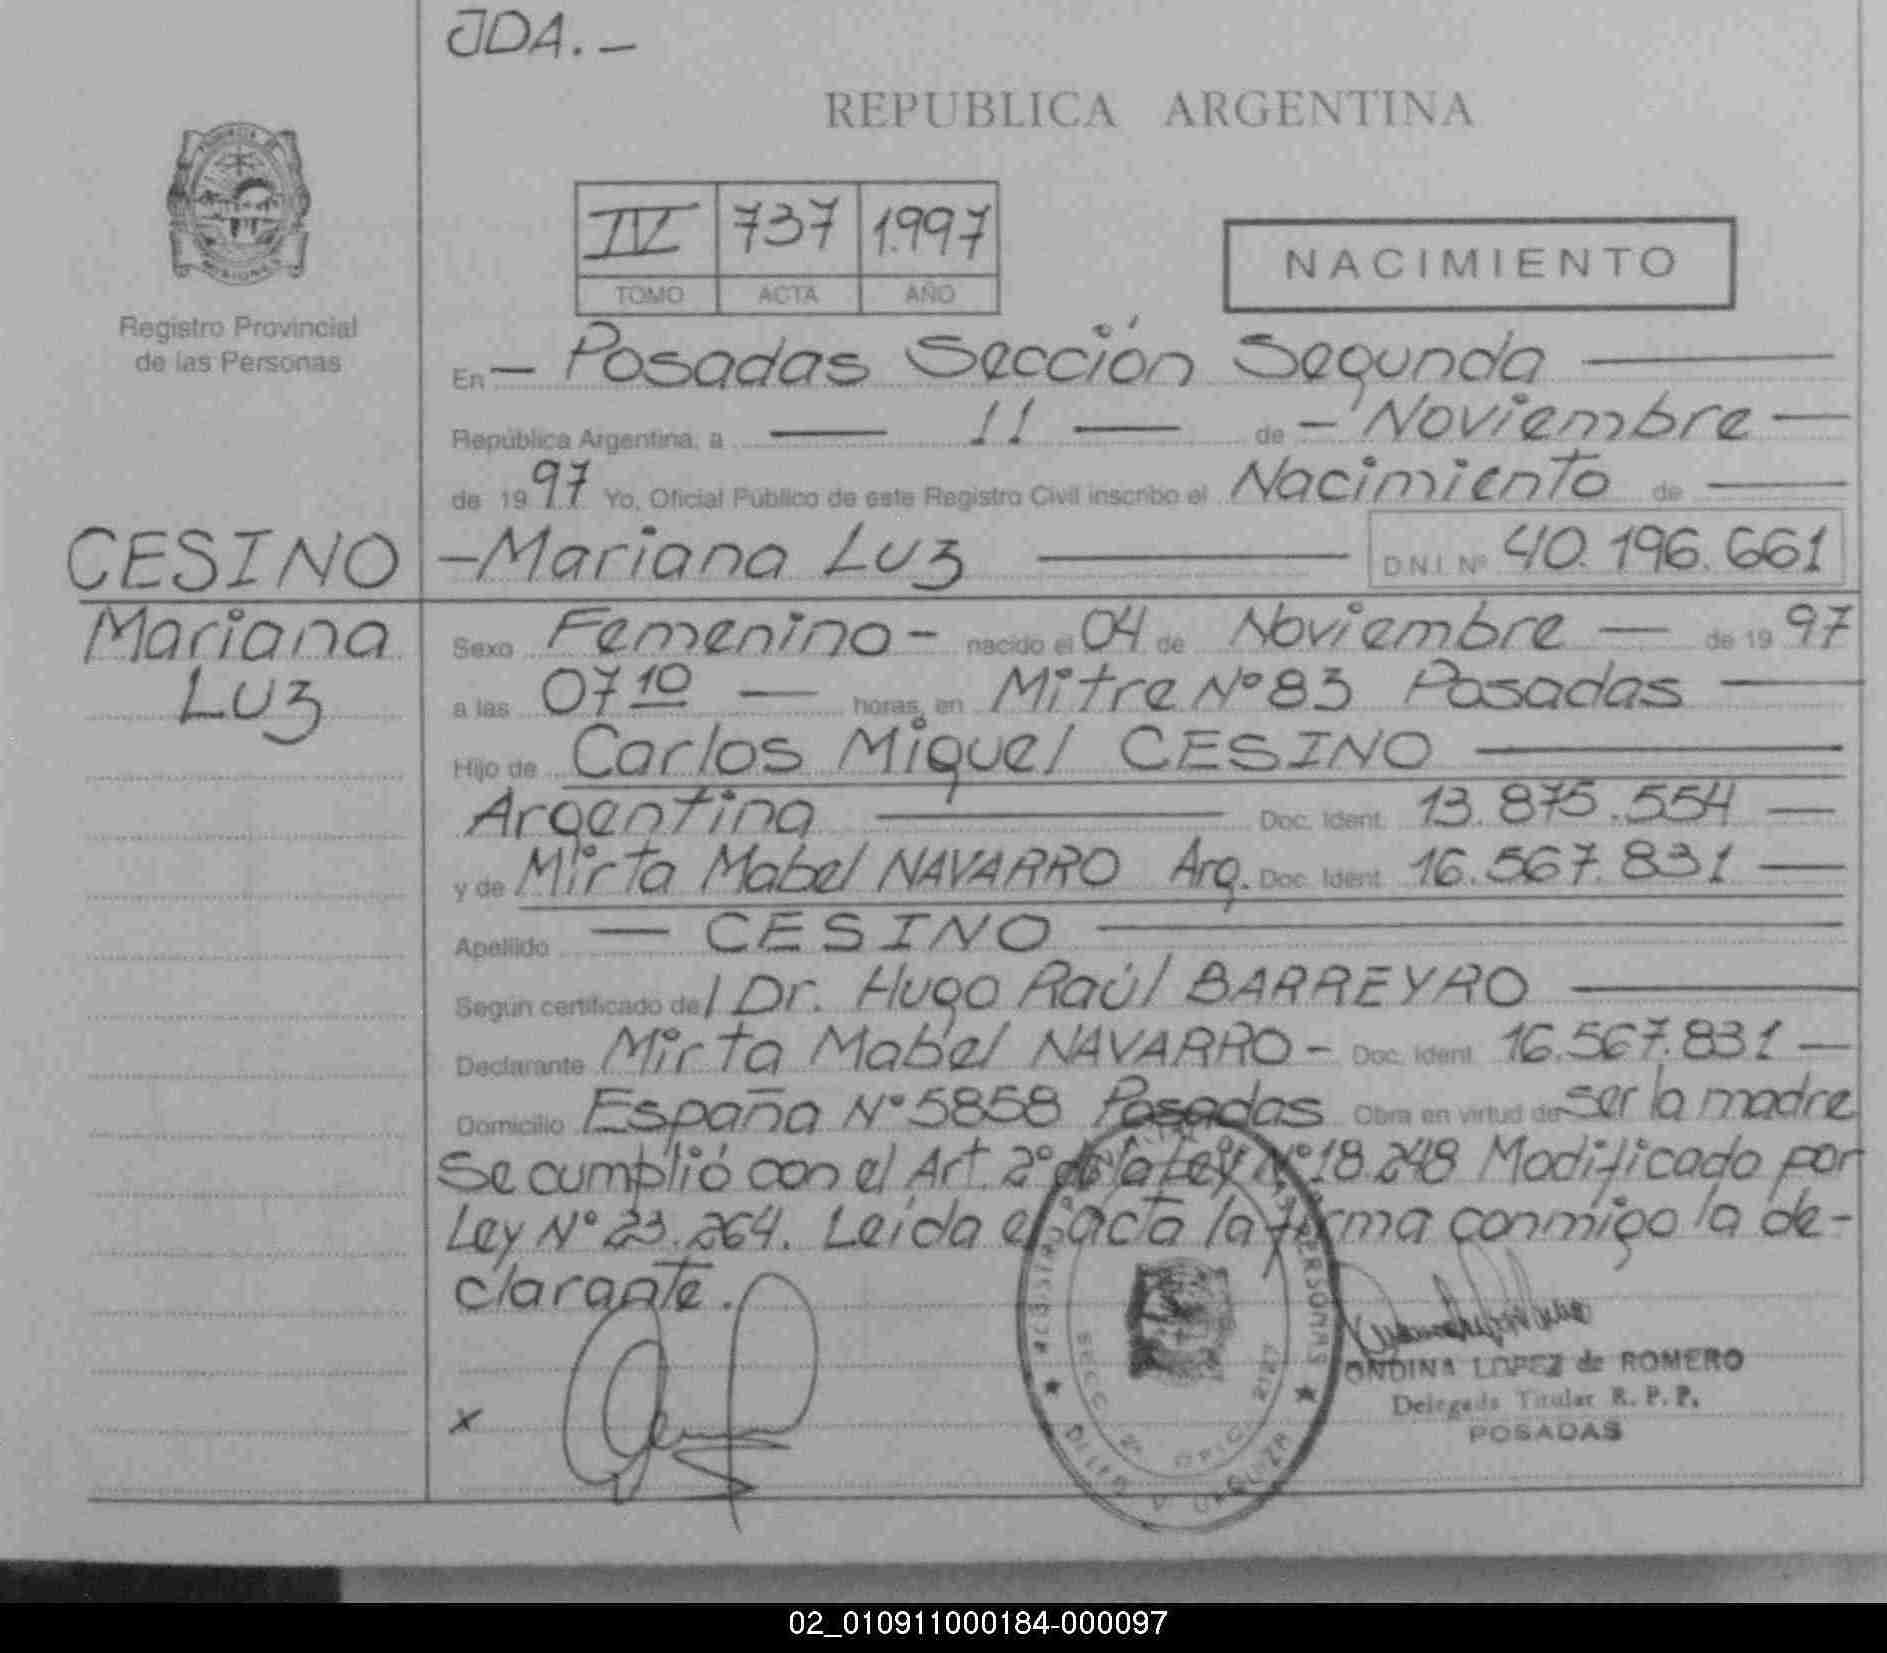 JDA. –
REPUBLICA ARGENTINA
IV 737 1.997
TOMO ACTA AÑO
NACIMIENTO
MISIONES
Registro Provincial
de las Personas
En – Posadas Sección Segunda
República Argentina, a 11 de – Noviembre –
de 1997 Yo, Oficial Público de este Registro Civil inscribo el Nacimiento de
CESINO – Mariana Luz D.N.I. Nº 40.196.661
Mariana
Luz
Sexo Femenino – nacido el 04 de Noviembre – de 1997
a las 07 10 – horas, en Mitre Nº 83 Posadas
Hijo de Carlos Miguel CESINO
Argentina Doc. Ident. 13.875.554 –
y de Mirta Mabel NAVARRO Arg. Doc. Ident. 16.567.831 –
Apellido – CESINO
Según certificado del Dr. Hugo Raúl BARREYRO
Declarante Mirta Mabel NAVARRO – Doc. Ident. 16.567.831 –
Domicilio España Nº 5858 Posadas Obra en virtud de ser la madre
Se cumplió con el Art. 2º de la Ley Nº 18.248 Modificado por
Ley Nº 23.264. Leída el acta la firma conmigo la de-
clarante.
x
ONDINA LOPEZ de ROMERO
Delegada Titular R. P. P.
POSADAS
SECC 2ª
PERSONAS
02_010911000184-000097